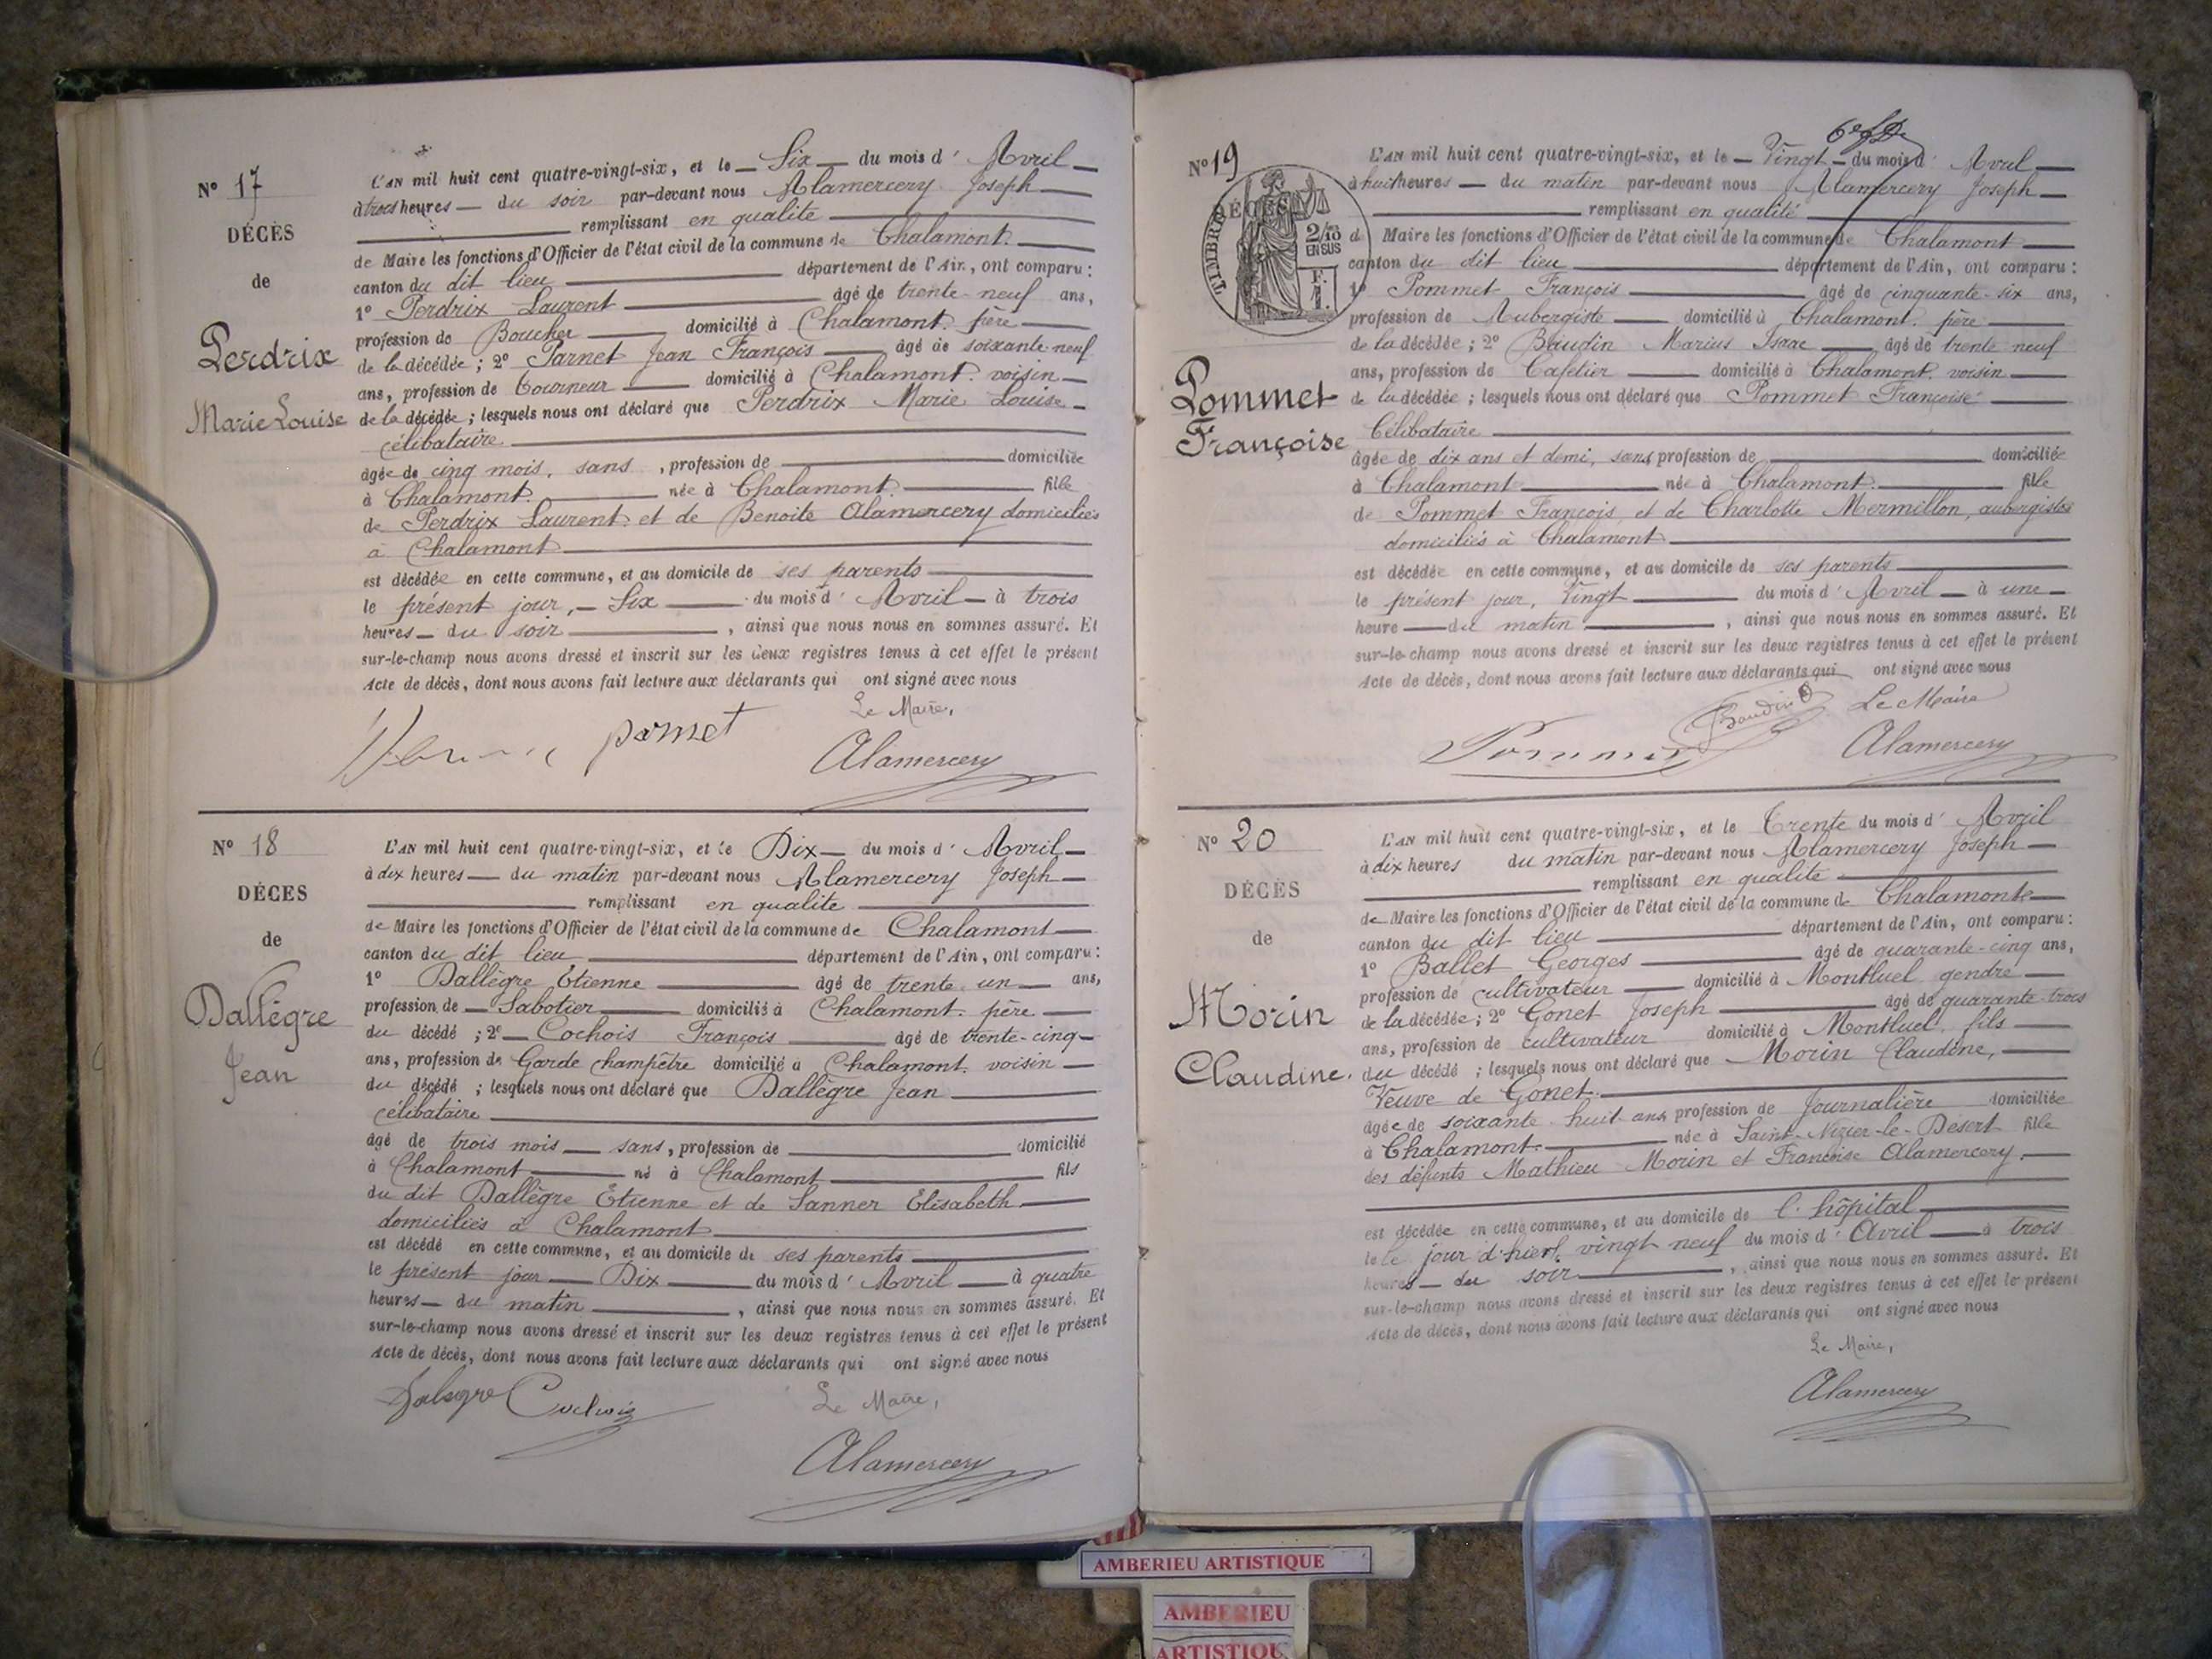 N° 17
DÉCÈS
de
Perdrix
Marie Louise
L'AN mil huit cent quatre-vingt-six, et le Six du mois d' Avril
à trois heures du soir par-devant nous Alamercery Joseph
remplissant en qualité
de Maire les fonctions d'Officier de l'état civil de la commune de Chalamont
canton du dit lieu département de l'Ain, ont comparu :
1° Perdrix Laurent âgé de trente-neuf ans,
profession de Boucher domicilié à Chalamont. père
de la décédée ; 2° Parnet Jean François âgé de soixante neuf
ans, profession de Tourneur domicilié à Chalamont. voisin
de la décédée ; lesquels nous ont déclaré que Perdrix Marie Louise
célibataire
âgée de cinq mois, sans, profession de domiciliée
à Chalamont née à Chalamont fille
de Perdrix Laurent et de Benoite Alamercery domiciliés
à Chalamont
est décédée en cette commune, et au domicile de ses parents
le présent jour, Six du mois d' Avril à trois
heures du soir, ainsi que nous nous en sommes assuré. Et
sur-le-champ nous avons dressé et inscrit sur les deux registres tenus à cet effet le présent
Acte de décès, dont nous avons fait lecture aux déclarants qui ont signé avec nous
Le Maire,
parnet
Alamercery
N° 18
DÉCÈS
de
Dallègre
Jean
L'AN mil huit cent quatre-vingt-six, et le Dix du mois d' Avril
à dix heures du matin par-devant nous Alamercery Joseph
remplissant en qualité
de Maire les fonctions d'Officier de l'état civil de la commune de Chalamont
canton du dit lieu département de l'Ain, ont comparu :
1° Dallègre Etienne âgé de trente un ans,
profession de Sabotier domicilié à Chalamont. père
du décédé ; 2° Cochois François âgé de trente-cinq
ans, profession de Garde champêtre domicilié à Chalamont. voisin
du décédé ; lesquels nous ont déclaré que Dallègre Jean
célibataire
âgé de trois mois sans, profession de domicilié
à Chalamont né à Chalamont fils
du dit Dallègre Etienne et de Sanner Elisabeth
domiciliés à Chalamont
est décédé en cette commune, et au domicile de ses parents
le présent jour Dix du mois d' Avril à quatre
heures du matin, ainsi que nous nous en sommes assuré. Et
sur-le-champ nous avons dressé et inscrit sur les deux registres tenus à cet effet le présent
Acte de décès, dont nous avons fait lecture aux déclarants qui ont signé avec nous
Le Maire,
Alamercery
N° 19
DÉCÈS
TIMBRE
2/10
EN SUS
F.
1.
Pommet
Françoise
L'AN mil huit cent quatre-vingt-six, et le Vingt du mois d' Avril
à huit heures du matin par-devant nous Alamercery Joseph
remplissant en qualité
de Maire les fonctions d'Officier de l'état civil de la commune de Chalamont
canton du dit lieu département de l'Ain, ont comparu :
1° Pommet François âgé de cinquante-six ans,
profession de Aubergiste domicilié à Chalamont. père
de la décédée ; 2° Baudin Marius Isaac âgé de trente neuf
ans, profession de Cafetier domicilié à Chalamont. voisin
de la décédée ; lesquels nous ont déclaré que Pommet Françoise
Célibataire
âgée de dix ans et demi, sans profession de domiciliée
à Chalamont née à Chalamont fille
de Pommet François et de Charlotte Mermillon, aubergistes
domiciliés à Chalamont
est décédée en cette commune, et au domicile de ses parents
le présent jour, Vingt du mois d' Avril à une
heure du matin, ainsi que nous nous en sommes assuré. Et
sur-le-champ nous avons dressé et inscrit sur les deux registres tenus à cet effet le présent
Acte de décès, dont nous avons fait lecture aux déclarants qui ont signé avec nous
Baudin
Le Maire
Alamercery
N° 20
DÉCÈS
de
Morin
Claudine.
L'AN mil huit cent quatre-vingt-six, et le Trente du mois d' Avril
à dix heures du matin par-devant nous Alamercery Joseph
remplissant en qualité
de Maire les fonctions d'Officier de l'état civil de la commune de Chalamont
canton du dit lieu département de l'Ain, ont comparu :
1° Ballet Georges âgé de quarante-cinq ans,
profession de cultivateur domicilié à Montluel gendre
de la décédée ; 2° Gonet Joseph âgé de quarante-trois
ans, profession de cultivateur domicilié à Montluel, fils
du décédé ; lesquels nous ont déclaré que Morin Claudine,
Veuve de Gonet.
âgée de soixante-huit ans, profession de Journalière domiciliée
à Chalamont. née à Saint-Nizier-le-Désert fille
des défunts Mathieu Morin et Françoise Alamercery.
est décédée en cette commune, et au domicile de l'hôpital
le le jour d'hier, vingt neuf du mois d' Avril à trois
heures du soir, ainsi que nous nous en sommes assuré. Et
sur-le-champ nous avons dressé et inscrit sur les deux registres tenus à cet effet le présent
Acte de décès, dont nous avons fait lecture aux déclarants qui ont signé avec nous
Le Maire,
Alamercery
AMBERIEU ARTISTIQUE
AMBERIEU
ARTISTIQU